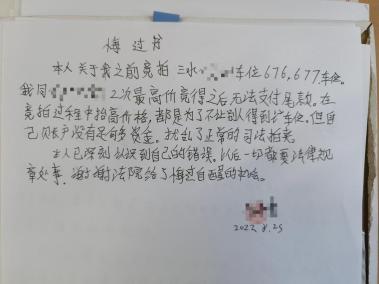 悔过书
本人关于我之前竞拍三水车位676,677车位。
我同2次最高价竞得之后无法支付尾款。在
竞拍过程中抬高价格,都是为了不让别人得到车位。但自
己账户没有足够资金。扰乱了正常的司法拍卖。
本人已深刻认识到自己的错误。以后一切都要法律规
章处事。谢谢法院给了悔过自醒的机会。
2022.8.25